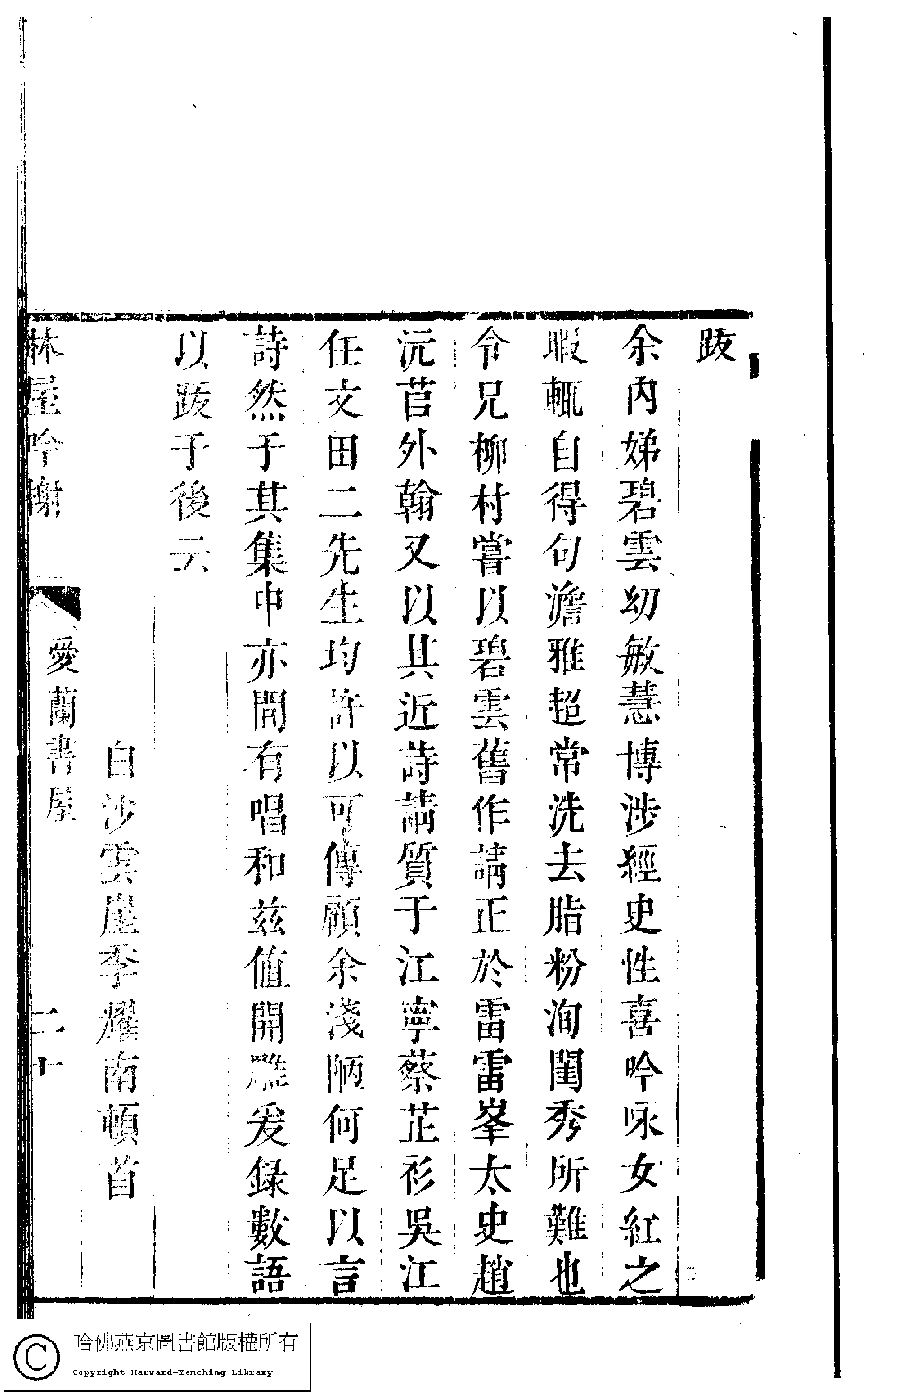 跋
余內娣碧雲幼敏慧博涉經史性喜吟咏女紅之
暇輒自得句澹雅超常洗去脂粉洵閨秀所難也
令兄柳村嘗以碧雲舊作請正於雷雷峯太史趙
沅苣外翰又以其近詩請質于江寧蔡芷衫吳江
任文田二先生均許以可傳顧余淺陋何足以言
詩然于其集中亦間有唱和兹值開雕爰録數語
以跋于後云
白沙雲崖季耀南頓首
林屋吟榭
愛蘭書屋
二十
哈佛燕京圖書館版權所有
Copyright Harvard-Yenching Library